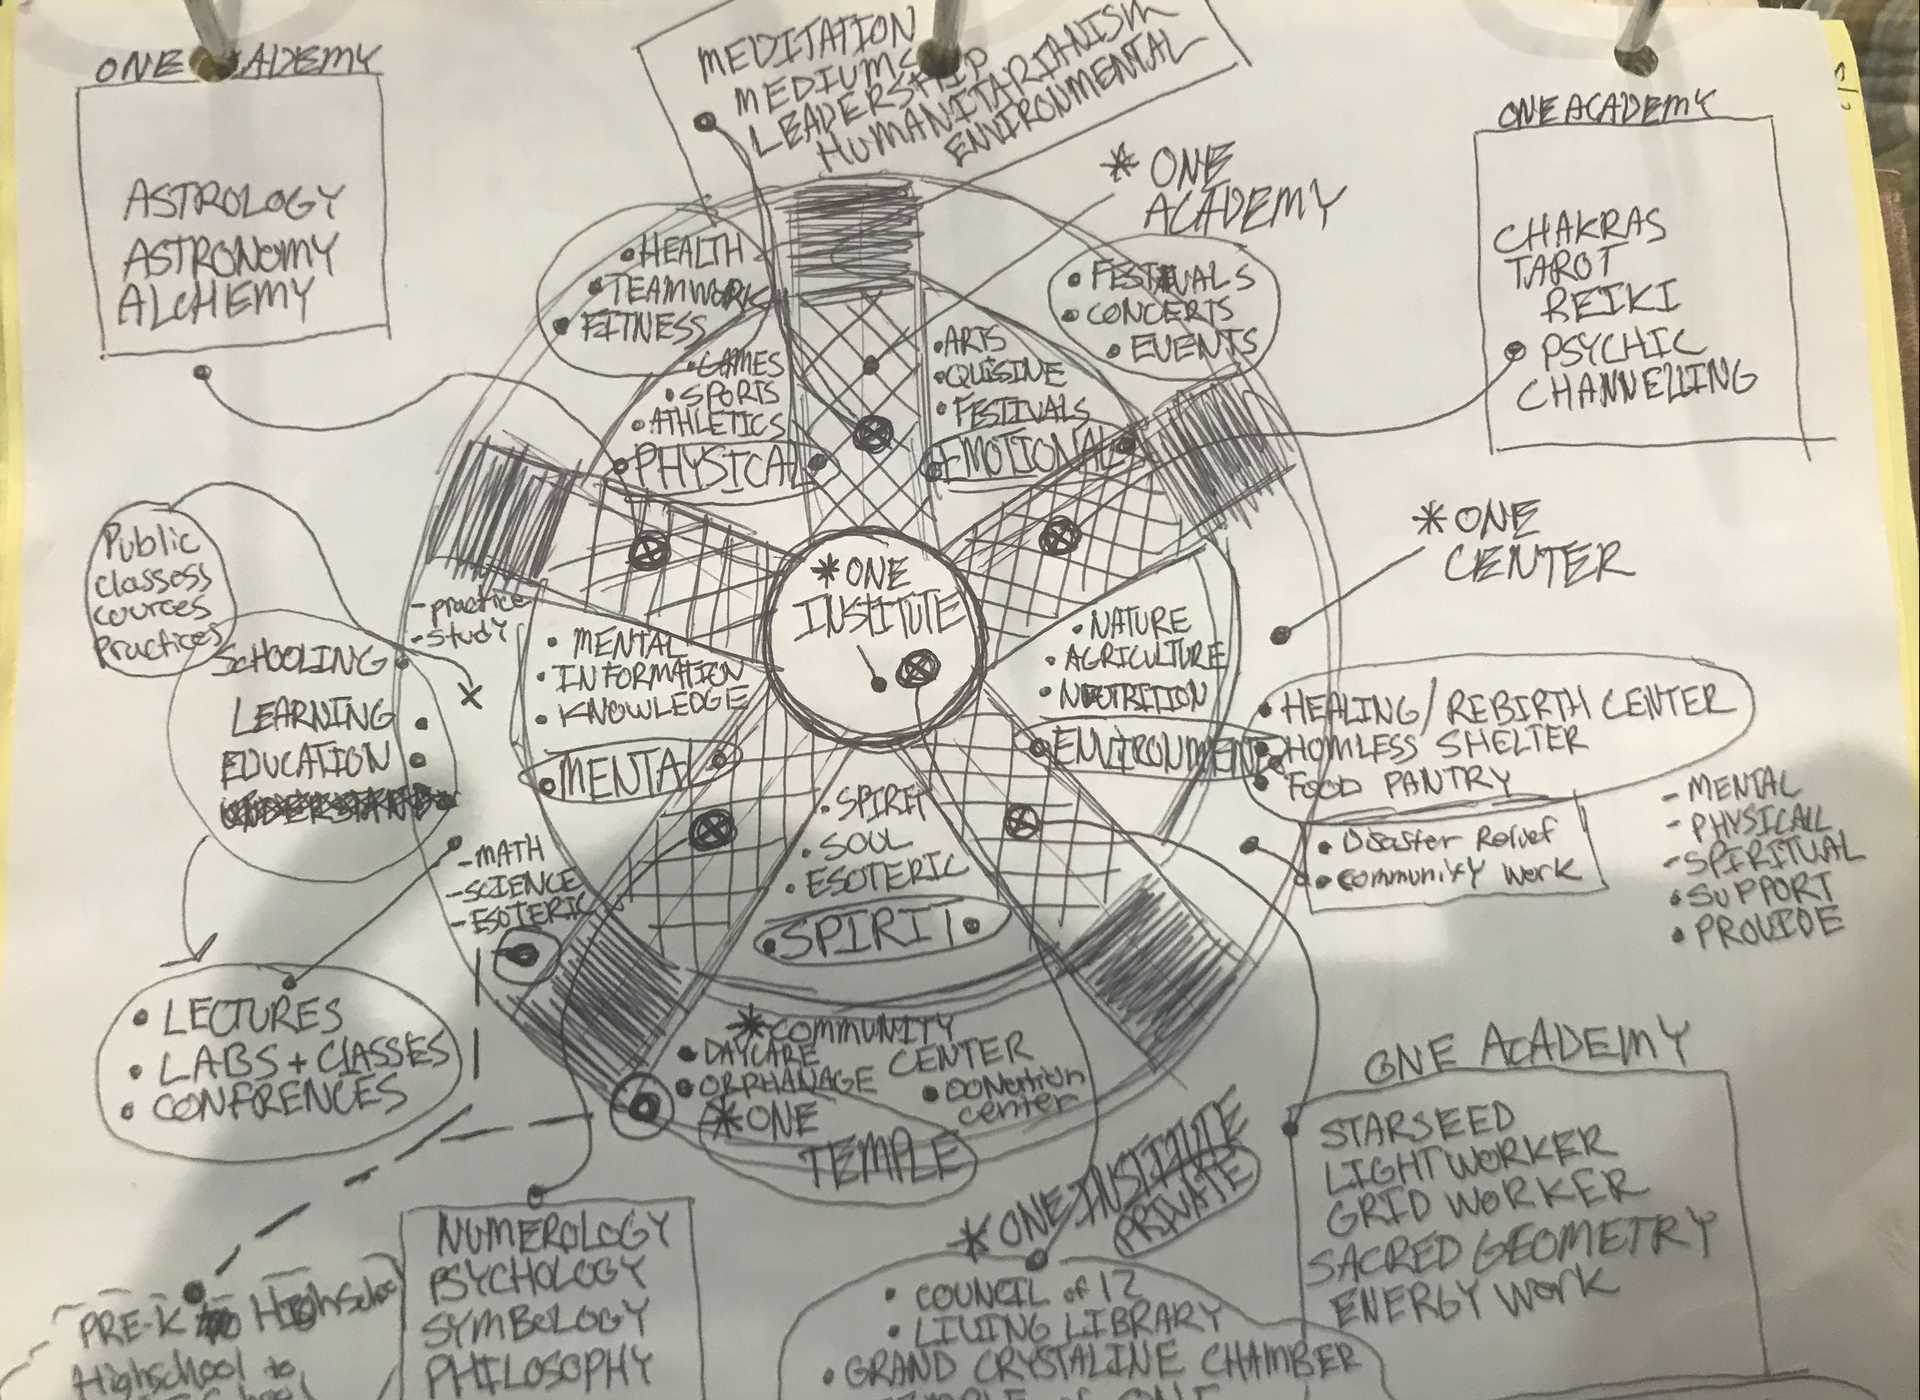 ONE ACADEMY
ASTROLOGY
ASTRONOMY
ALCHEMY
MEDITATION
MEDIUMS
LEADERSHIP
HUMANITARIANISM
ENVIRONMENTAL
* ONE
ACADEMY
ONE ACADEMY
CHAKRAS
TAROT
REIKI
PSYCHIC
CHANNELLING
• HEALTH
• TEAMWORK
• FITNESS
• GAMES
• SPORTS
• ATHLETICS
PHYSICAL
• FESTIVALS
• CONCERTS
• EVENTS
• ARTS
• QUISINE
• FESTIVALS
EMOTIONAL
* ONE
CENTER
* ONE
INSTITUTE
Public
Classess
Cources
Practices
SCHOOLING
LEARNING
EDUCATION
- practice
- study
• MENTAL
• INFORMATION
• KNOWLEDGE
MENTAL
• NATURE
• AGRICULTURE
• NEUTRITION
ENVIRONMENT
• HEALING/REBIRTH CENTER
• HOMLESS SHELTER
• FOOD PANTRY
• Disaster Relief
• Community Work
- MENTAL
- PHYSICALL
- SPIRITUAL
• SUPPORT
• PROVIDE
- MATH
- SCIENCE
- ESOTERIC
• SPIRIT
• SOUL
• ESOTERIC
SPIRIT
• LECTURES
• LABS + CLASSES
• CONFRENCES
* COMMUNITY
CENTER
• DAYCARE
• ORPHANAGE
• DONATION
center
* ONE
TEMPLE
* ONE INSTITUTE
PRIVATE
• COUNCIL of 12
• LIVING LIBRARY
• GRAND CRYSTALINE CHAMBER
ONE ACADEMY
STARSEED
LIGHTWORKER
GRID WORKER
SACRED GEOMETRY
ENERGY WORK
NUMEROLOGY
PSYCHOLOGY
SYMBOLOGY
PHILOSOPHY
PRE-K to Highschool
Highschool to